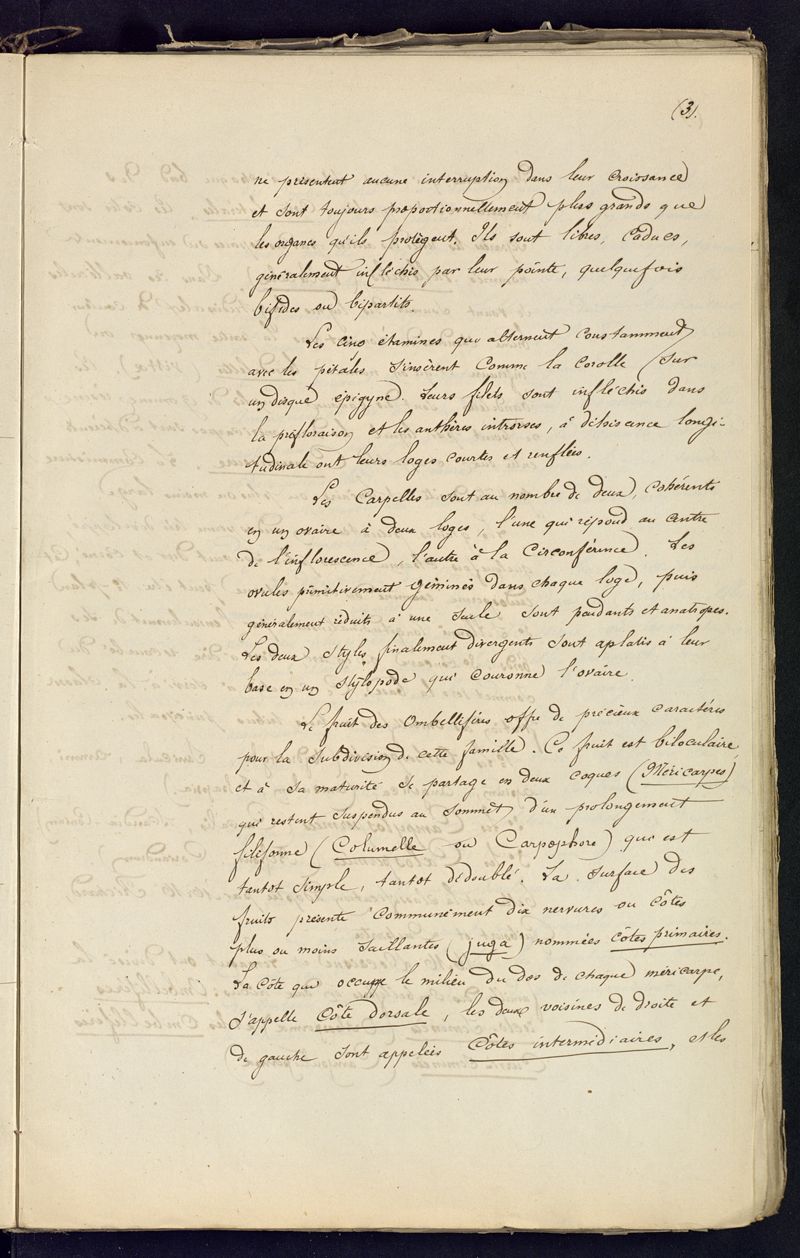 (3).
ne présentent aucune interruption dans leur croissance
et sont toujours proportionnellement plus grands que
les organes qu'ils protègent. Ils sont libres, caducs,
généralement infléchis par leur pointe, quelquefois
bifides ou bipartits.
Les cinq étamines qui alternent constamment
avec les pétales s'insèrent comme la corolle sur
un disque épigyne. Leurs filets sont infléchis dans
la préfloraison et les anthères introrses, à déhiscence longi-
tudinale ont leurs loges courtes et renflées.
Les Carpelles sont au nombre de deux, cohérents
en un ovaire à deux loges, l'une qui répond au centre
de l'inflorescence, l'autre à la circonférence. Les
ovules primitivement géminés dans chaque loge, puis
généralement réduits à une seule sont pendants et anatropes.
Les deux styles finalement divergents sont aplatis à leur
base en un stylopode qui couronne l'ovaire.
Le fruit des Ombellifères offre de précieux caractères
pour la subdivision de cette famille. Ce fruit est biloculaire
et à sa maturité se partage en deux coques (Méricarpes)
qui restent suspendus au sommet d'un prolongement
filiforme (Columelle ou Carpophore) qui est
tantot simple, tantot dédoublé. La surface des
fruits présente communément dix nervures ou côtes
plus ou moins saillantes (juga) nommées côtes primaires.
La côte qui occupe le milieu du dos de chaque méricarpe,
s'appelle Côte dorsale, les deux voisines de droite et
de gauche sont appelées Côtes intermédiaires, et les